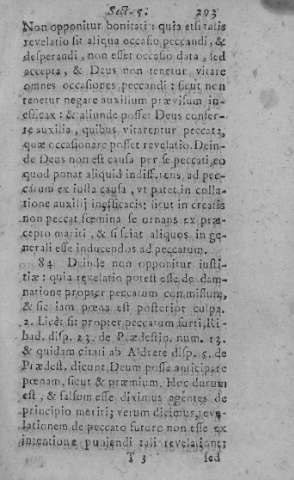 Sect. 5. 293
Non opponitur bonitati: quia etsi talis
revelatio sit aliqua occasio peccandi, &
desperandi, non esset occasio data, sed
accepta, & Deus non tenetur vitare
omnes occasiones peccandi: sicut non
tenetur negare auxilium prævisum in-
efficax: & aliunde posset Deus confer-
re auxilia, quibus vitarentur peccata,
quæ occasionare posset revelatio. Dein-
de Deus non est causa per se peccati, eo
quod ponat aliquid indifferens, ad pec-
catum ex iusta causa, ut patet in colla-
tione auxilij inefficacis: sicut in creatis
non peccat fœmina se ornans ex præ-
cepto mariti, & si sciat aliquos in ge-
nerali esse inducendos ad peccatum.
84. Deinde non opponitur iusti-
tiæ: quia revelatio potest esse de dam-
natione propter peccatum commissum,
& sic iam pœna est posterior culpa.
2. Licet sit propter peccatum futuri, Ri-
bad. disp. 23. de Prædestin. num. 13.
& quidam citati ab Aldrete disp. 5. de
Prædest. dicunt, Deum posse anticipare
pœnam, sicut & præmium. Hoc durum
est, & falsum esse diximus agentes de
principio meriti; verum dicimus, reve-
lationem de peccato futuro non esse ex
intentione puniendi tali revelatione;
T 3 sed